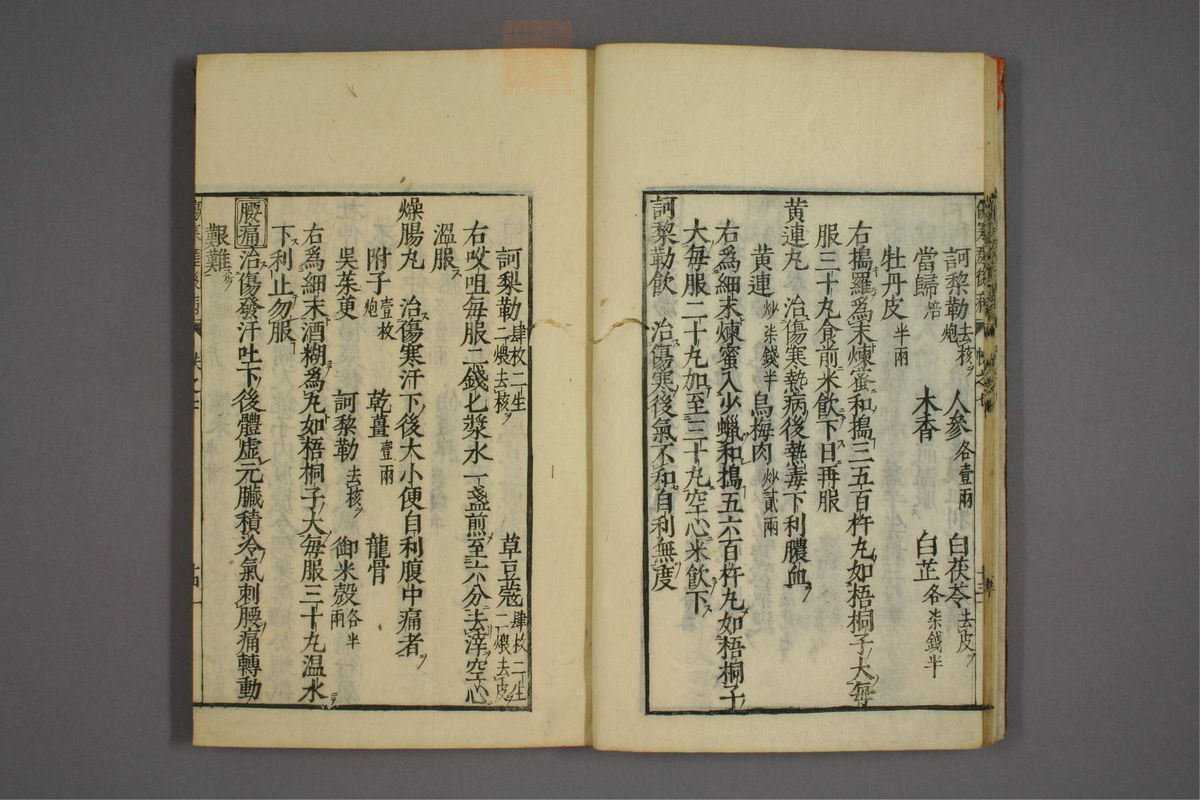 訶黎勒去核炮 人參各壹兩 白茯苓去皮
當歸焙 木香 白芷各柒錢半
牡丹皮半兩
右搗羅爲末煉蜜和搗三五百杵丸如梧桐子大每
服三十丸食前米飲下日再服
黄連丸 治傷寒熱病後熱毒下利膿血
黄連炒柒錢半 烏梅肉炒貳兩
右爲細末煉蜜入少蠟和搗五六百杵丸如梧桐子
大每服二十丸加至三十丸空心米飲下
訶黎勒飲 治傷寒後氣不和自利無度
訶梨勒肆枚二生二煨去核 草豆蔻肆枚二生二煨去皮
右㕮咀每服二錢匕漿水一盞煎至六分去滓空心
溫服
燥腸丸 治傷寒汗下後大小便自利腹中痛者
附子壹枚炮 乾薑壹兩 龍骨
吴茱萸 訶黎勒去核 御米殼各半兩
右爲細末酒糊爲丸如梧桐子大每服三十丸温水
下利止勿服
腰痛治傷發汗吐下後體虛元臟積冷氣刺腰痛轉動
艱難